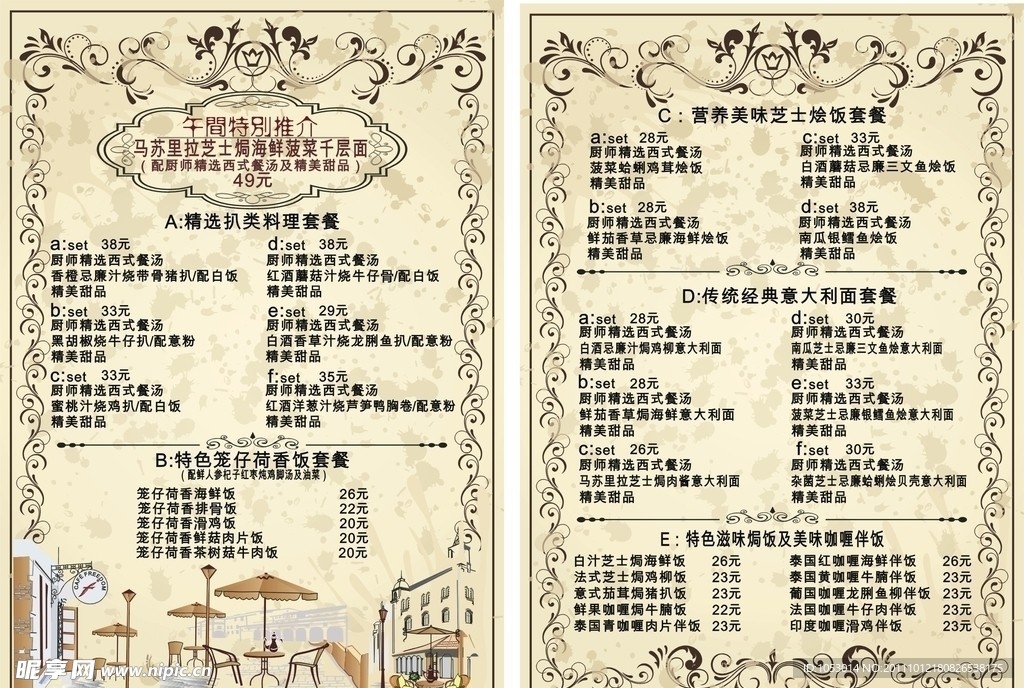 午間特別推介
马苏里拉芝士焗海鲜菠菜千层面
(配厨师精选西式餐汤及精美甜品)
49元
A:精选扒类料理套餐
a:set 38元
厨师精选西式餐汤
香橙忌廉汁烧带骨猪扒/配白饭
精美甜品
b:set 33元
厨师精选西式餐汤
黑胡椒烧牛仔扒/配意粉
精美甜品
c:set 33元
厨师精选西式餐汤
蜜桃汁烧鸡扒/配白饭
精美甜品
d:set 38元
厨师精选西式餐汤
红酒蘑菇汁烧牛仔骨/配白饭
精美甜品
e:set 29元
厨师精选西式餐汤
白酒香草汁烧龙脷鱼扒/配意粉
精美甜品
f:set 35元
厨师精选西式餐汤
红酒洋葱汁烧芦笋鸭胸卷/配意粉
精美甜品
B:特色笼仔荷香饭套餐
(配鲜人参杞子红枣炖鸡脚汤及油菜)
笼仔荷香海鲜饭 26元
笼仔荷香排骨饭 22元
笼仔荷香滑鸡饭 20元
笼仔荷香鲜菇肉片饭 20元
笼仔荷香茶树菇牛肉饭 20元
CAFE FREEDOM
昵享网 www.nipic.cn
C：营养美味芝士烩饭套餐
a:set 28元
厨师精选西式餐汤
菠菜蛤蜊鸡茸烩饭
精美甜品
b:set 28元
厨师精选西式餐汤
鲜茄香草忌廉海鲜烩饭
精美甜品
c:set 33元
厨师精选西式餐汤
白酒蘑菇忌廉三文鱼烩饭
精美甜品
d:set 38元
厨师精选西式餐汤
南瓜银鳕鱼烩饭
精美甜品
D:传统经典意大利面套餐
a:set 28元
厨师精选西式餐汤
白酒忌廉汁焗鸡柳意大利面
精美甜品
b:set 28元
厨师精选西式餐汤
鲜茄香草焗海鲜意大利面
精美甜品
c:set 26元
厨师精选西式餐汤
马苏里拉芝士焗肉酱意大利面
精美甜品
d:set 30元
厨师精选西式餐汤
南瓜芝士忌廉三文鱼烩意大利面
精美甜品
e:set 33元
厨师精选西式餐汤
菠菜芝士忌廉银鳕鱼烩意大利面
精美甜品
f:set 30元
厨师精选西式餐汤
杂菌芝士忌廉蛤蜊烩贝壳意大利面
精美甜品
E：特色滋味焗饭及美味咖喱伴饭
白汁芝士焗海鲜饭 26元
法式芝士焗鸡柳饭 23元
意式茄茸焗猪扒饭 23元
鲜果咖喱焗牛腩饭 22元
泰国青咖喱肉片伴饭 23元
泰国红咖喱海鲜伴饭 26元
泰国黄咖喱牛腩伴饭 23元
葡国咖喱龙脷鱼柳伴饭 23元
法国咖喱牛仔肉伴饭 23元
印度咖喱滑鸡伴饭 23元
ID:1053914 NO:20111012180826538175